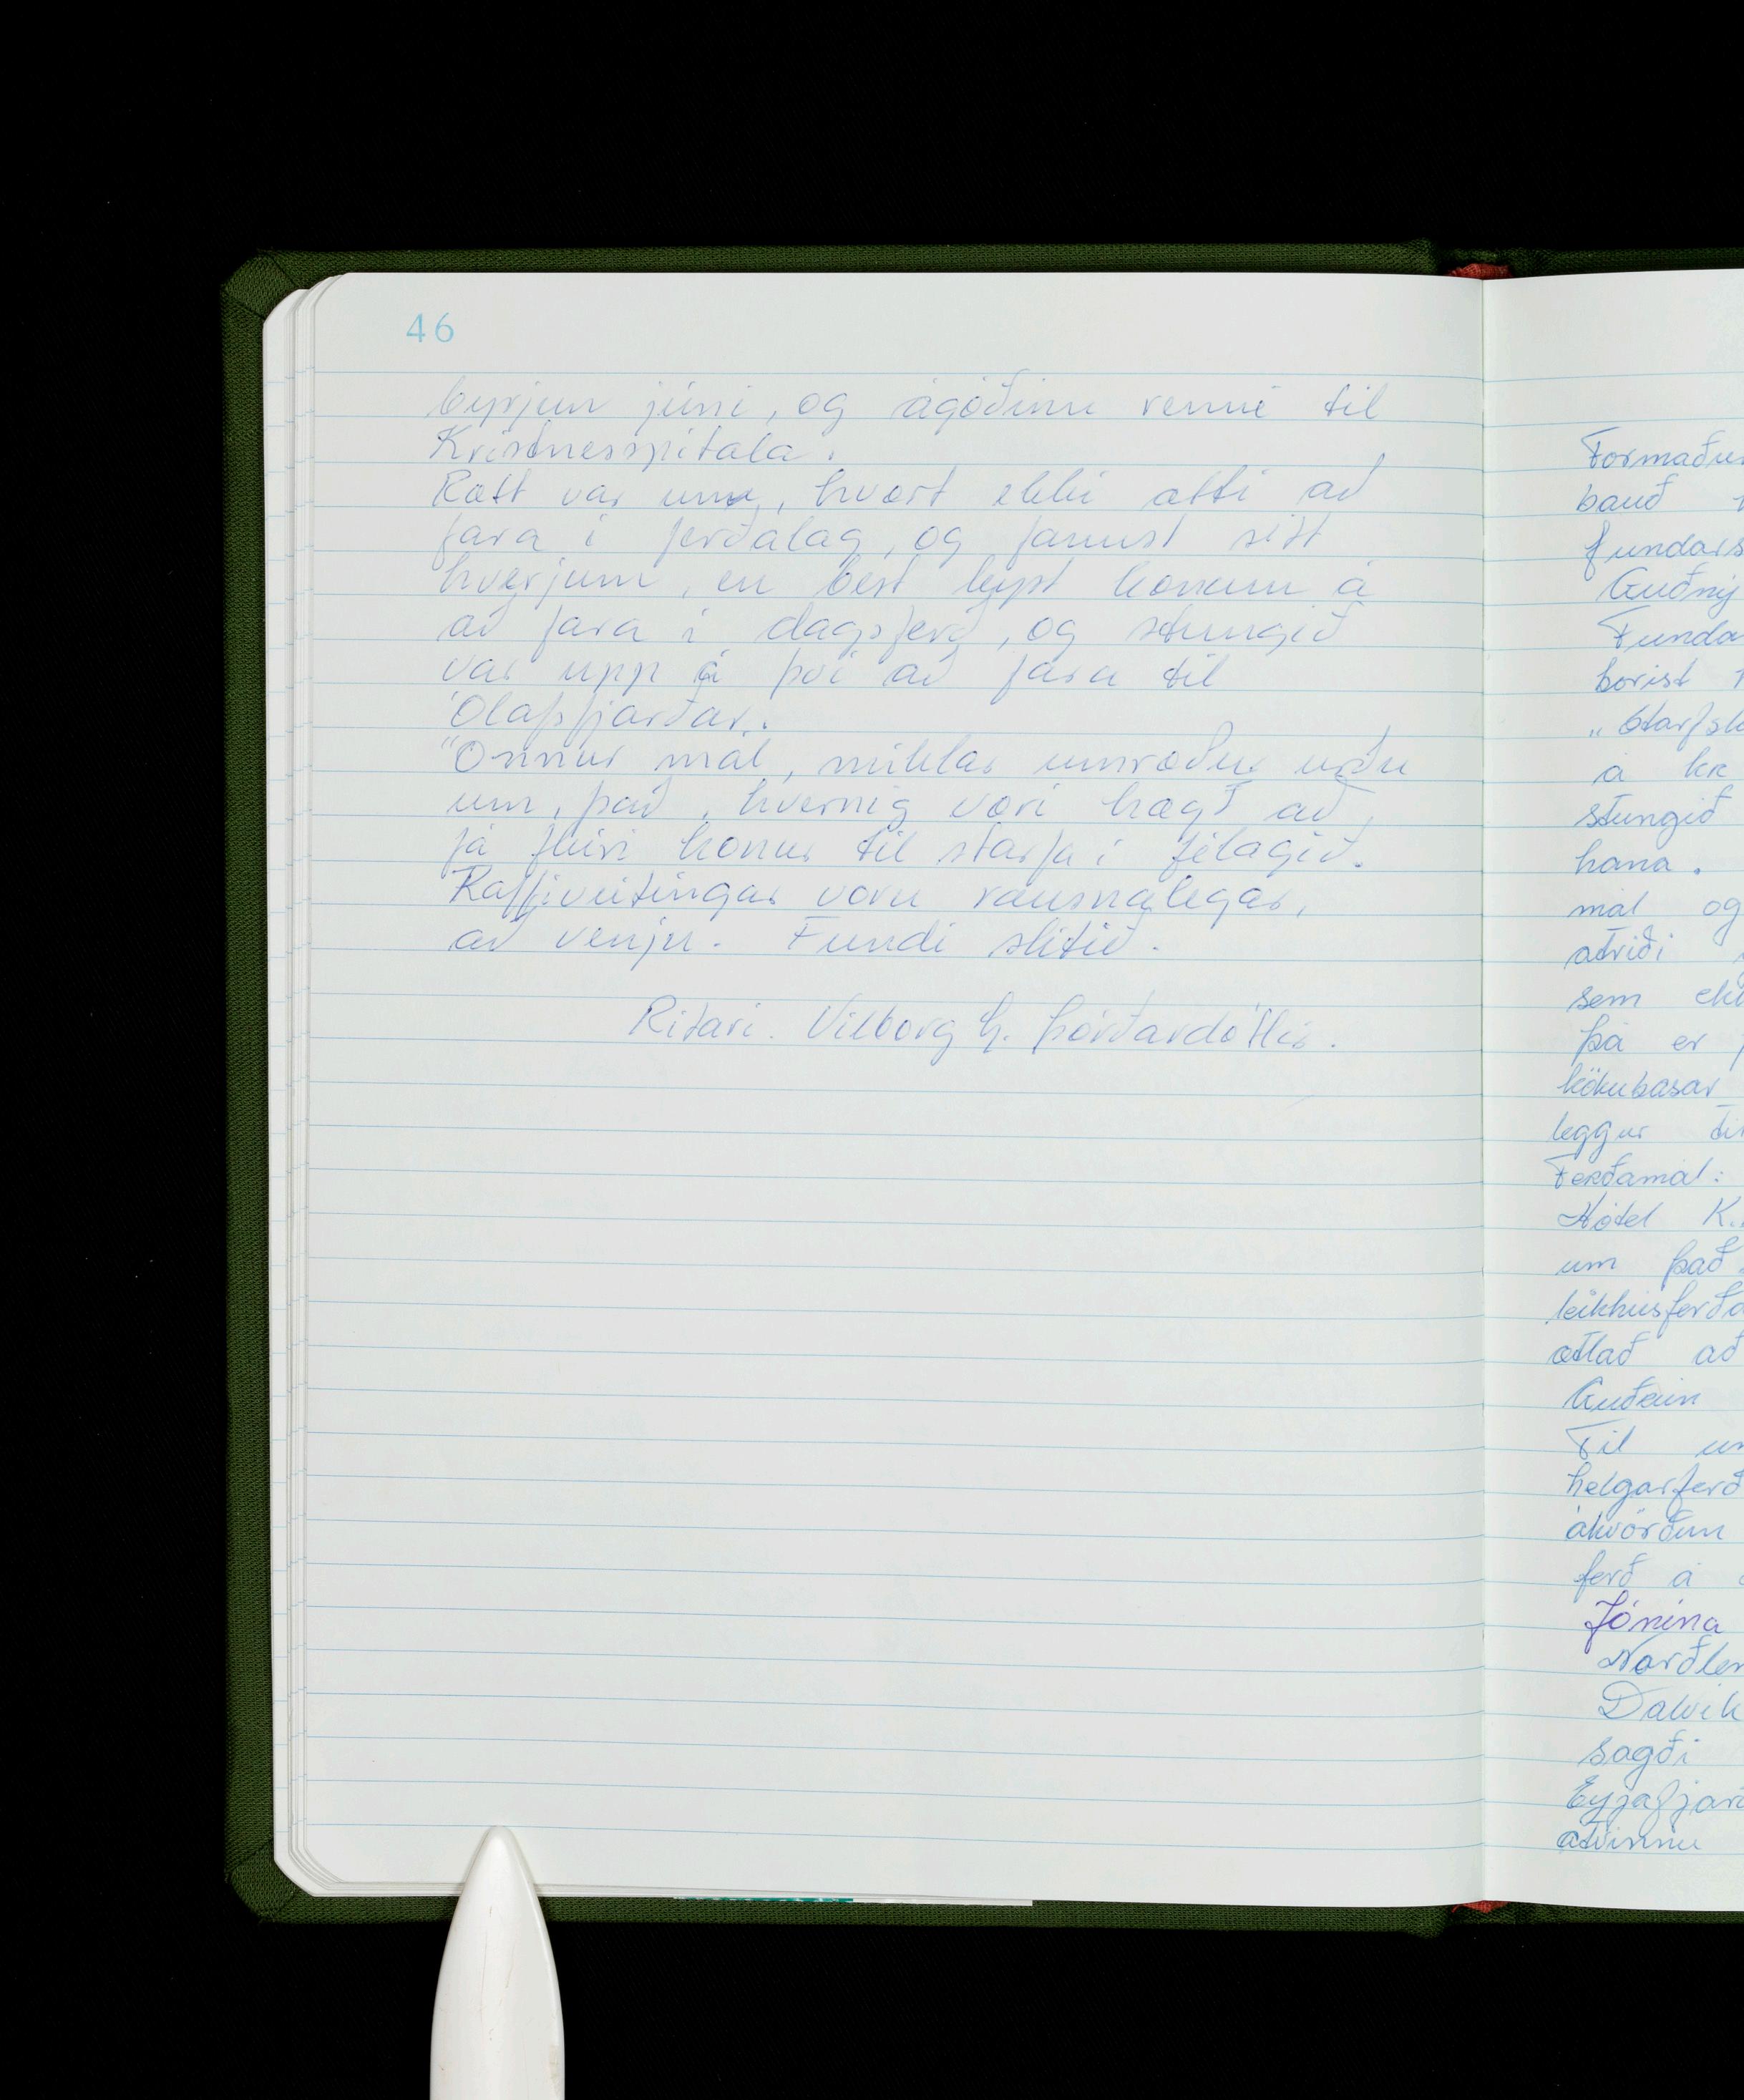 46
byrjun júní, og ágóðinn renni til
Kristnesspítala.
Rætt var um, hvort ekki ætti að
fara í ferðalag, og fannst sitt
hverjum, en best leyst konum á
að fara í dagsferð, og stungið
var upp á því að fara til
Ólafsfjarðar.
Önnur mál, miklar umræður urðu
um, það, hvernig væri hægt að
fá fleiri konur til starfa í félagið.
Kaffiveitingar voru rausnalegar,
að venju. Fundi slitið.
Ritari. Vilborg G. Þórðardóttir.
Formaður
bauð
fundars
Guðný
Funda
borist
„Starfsl
á kr
stungið
hana.
mál og
atriði
sem ekk
þá er
kökubasar
leggur til
Ferðamál:
Hótel K.
um það
leikhúsferða
ætlað að
Guðrún
Til um
helgarferð
ákvörðun
ferð á
Jónína
Norðlen
Dalvík
sagði
Eyjafjarð
atvinnu